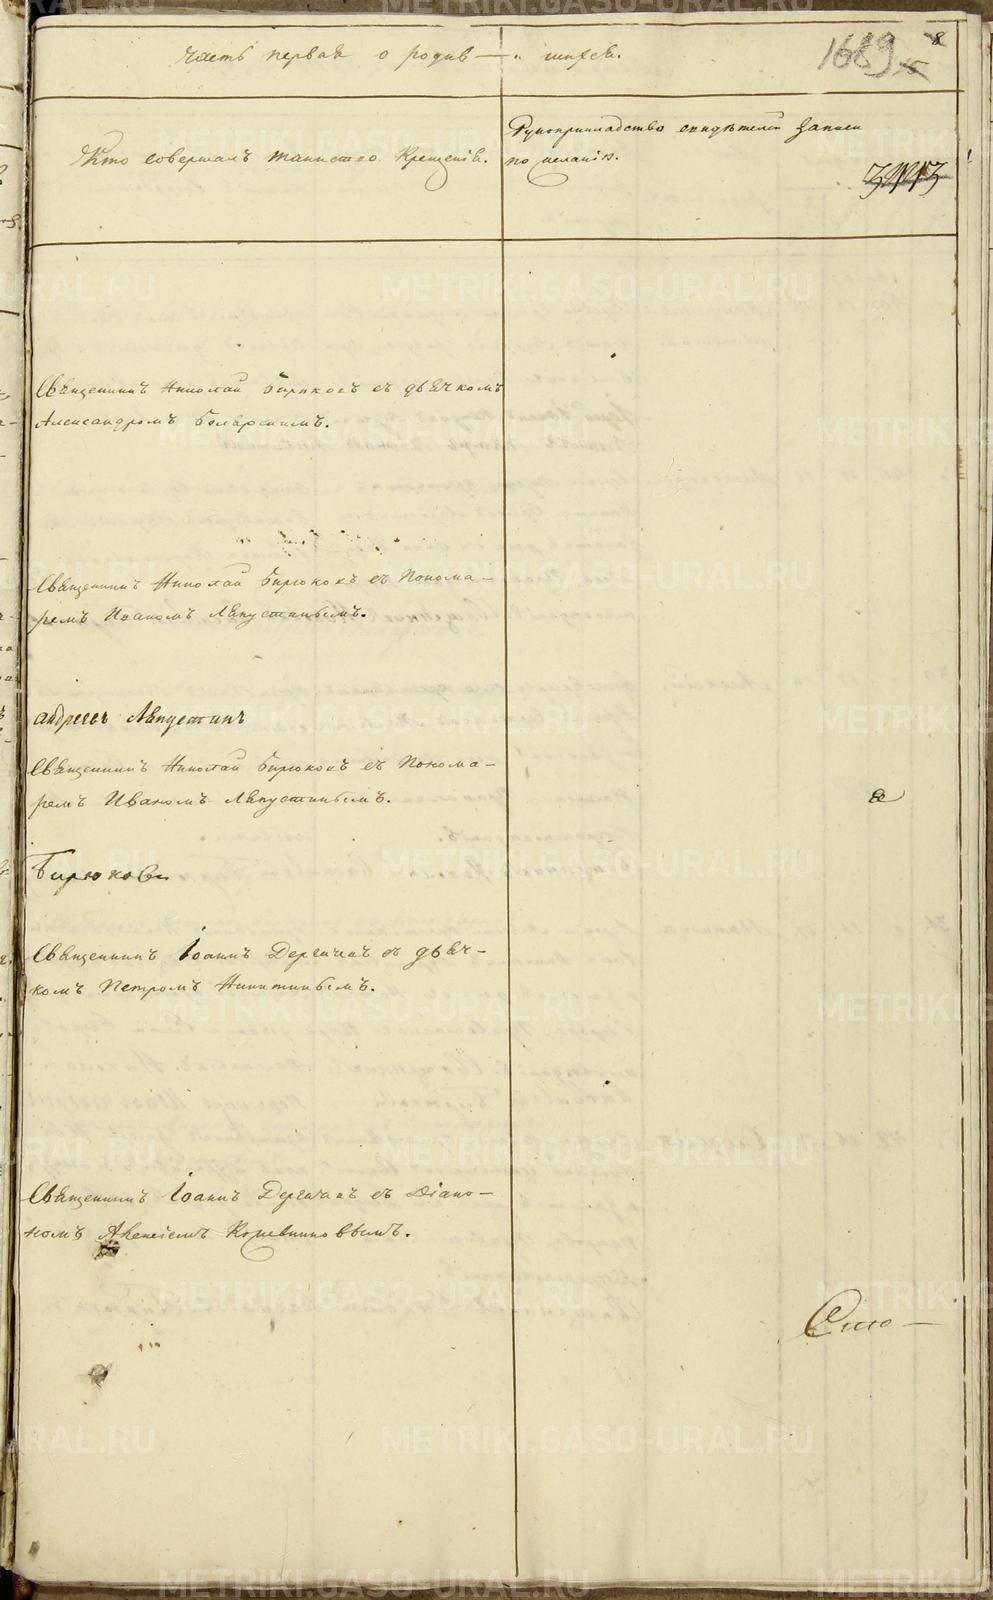 часть первая о родив — шихся.
1689
8
Кто совершалъ таинство Крещенія.
Рукоприкладство свидѣтелей записи
по желанію.
Священникъ Николай Бирюковъ съ дьячкомъ
Александромъ
Священникъ Николай Бирюковъ съ Понома-
ремъ Иваномъ Лѣпустинымъ.
андреевъ Лѣпустинъ
Священникъ Николай Бирюковъ съ Понома-
ремъ Иваномъ Лѣпустинымъ.
Бирюковъ
Священникъ Іоаннъ Дерябинъ съ дьяч-
комъ Петромъ Никитинымъ.
Священникъ Іоаннъ Дерябинъ съ Діако-
номъ
METRIKI.GASO-URAL.RU